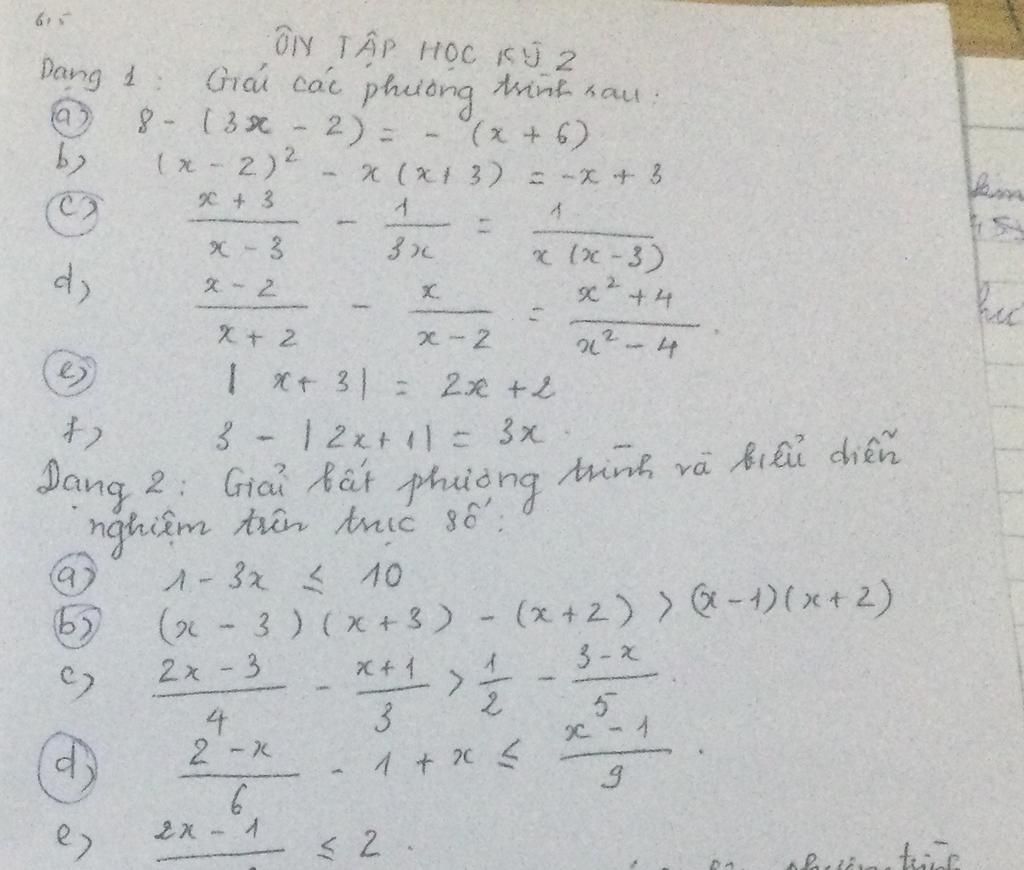 ÔN TẬP HỌC KỲ 2
Dạng 1 : Giải các phương trình sau :
a) 8 - (3x - 2) = - (x + 6)
b) (x - 2)² - x(x + 3) = -x + 3
c) (x + 3)/(x - 3) - 1/(3x) = 1/(x(x - 3))
d) (x - 2)/(x + 2) - x/(x - 2) = (x² + 4)/(x² - 4) .
e) |x + 3| = 2x + 2
f) 3 - |2x + 1| = 3x .
Dạng 2 : Giải bất phương trình và biểu diễn
nghiệm trên trục số :
a) 1 - 3x ≤ 10
b) (x - 3)(x + 3) - (x + 2) > (x - 1)(x + 2)
c) (2x - 3)/4 - (x + 1)/3 > 1/2 - (3 - x)/5 .
d) (2 - x)/6 - 1 + x ≤ (x - 1)/9 .
e) 2x - 1 ≤ 2 .
phương trình